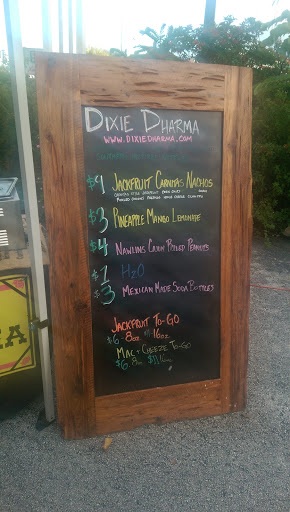 DIXIE DHARMA
WWW.DIXIEDHARMA.COM
JACKFRUIT CARNITAS NACHOS
$3 PINEAPPLE MANGO LEMONADE
$4 NAWLINS CAJUN BOILED PEANUTS
$1 H2O
$3 MEXICAN MADE SODA BOTTLES
JACKFRUIT TO-GO
$6-8oz 16oz
MAC + CHEEZE TO-GO
$6-8oz $11-16oz